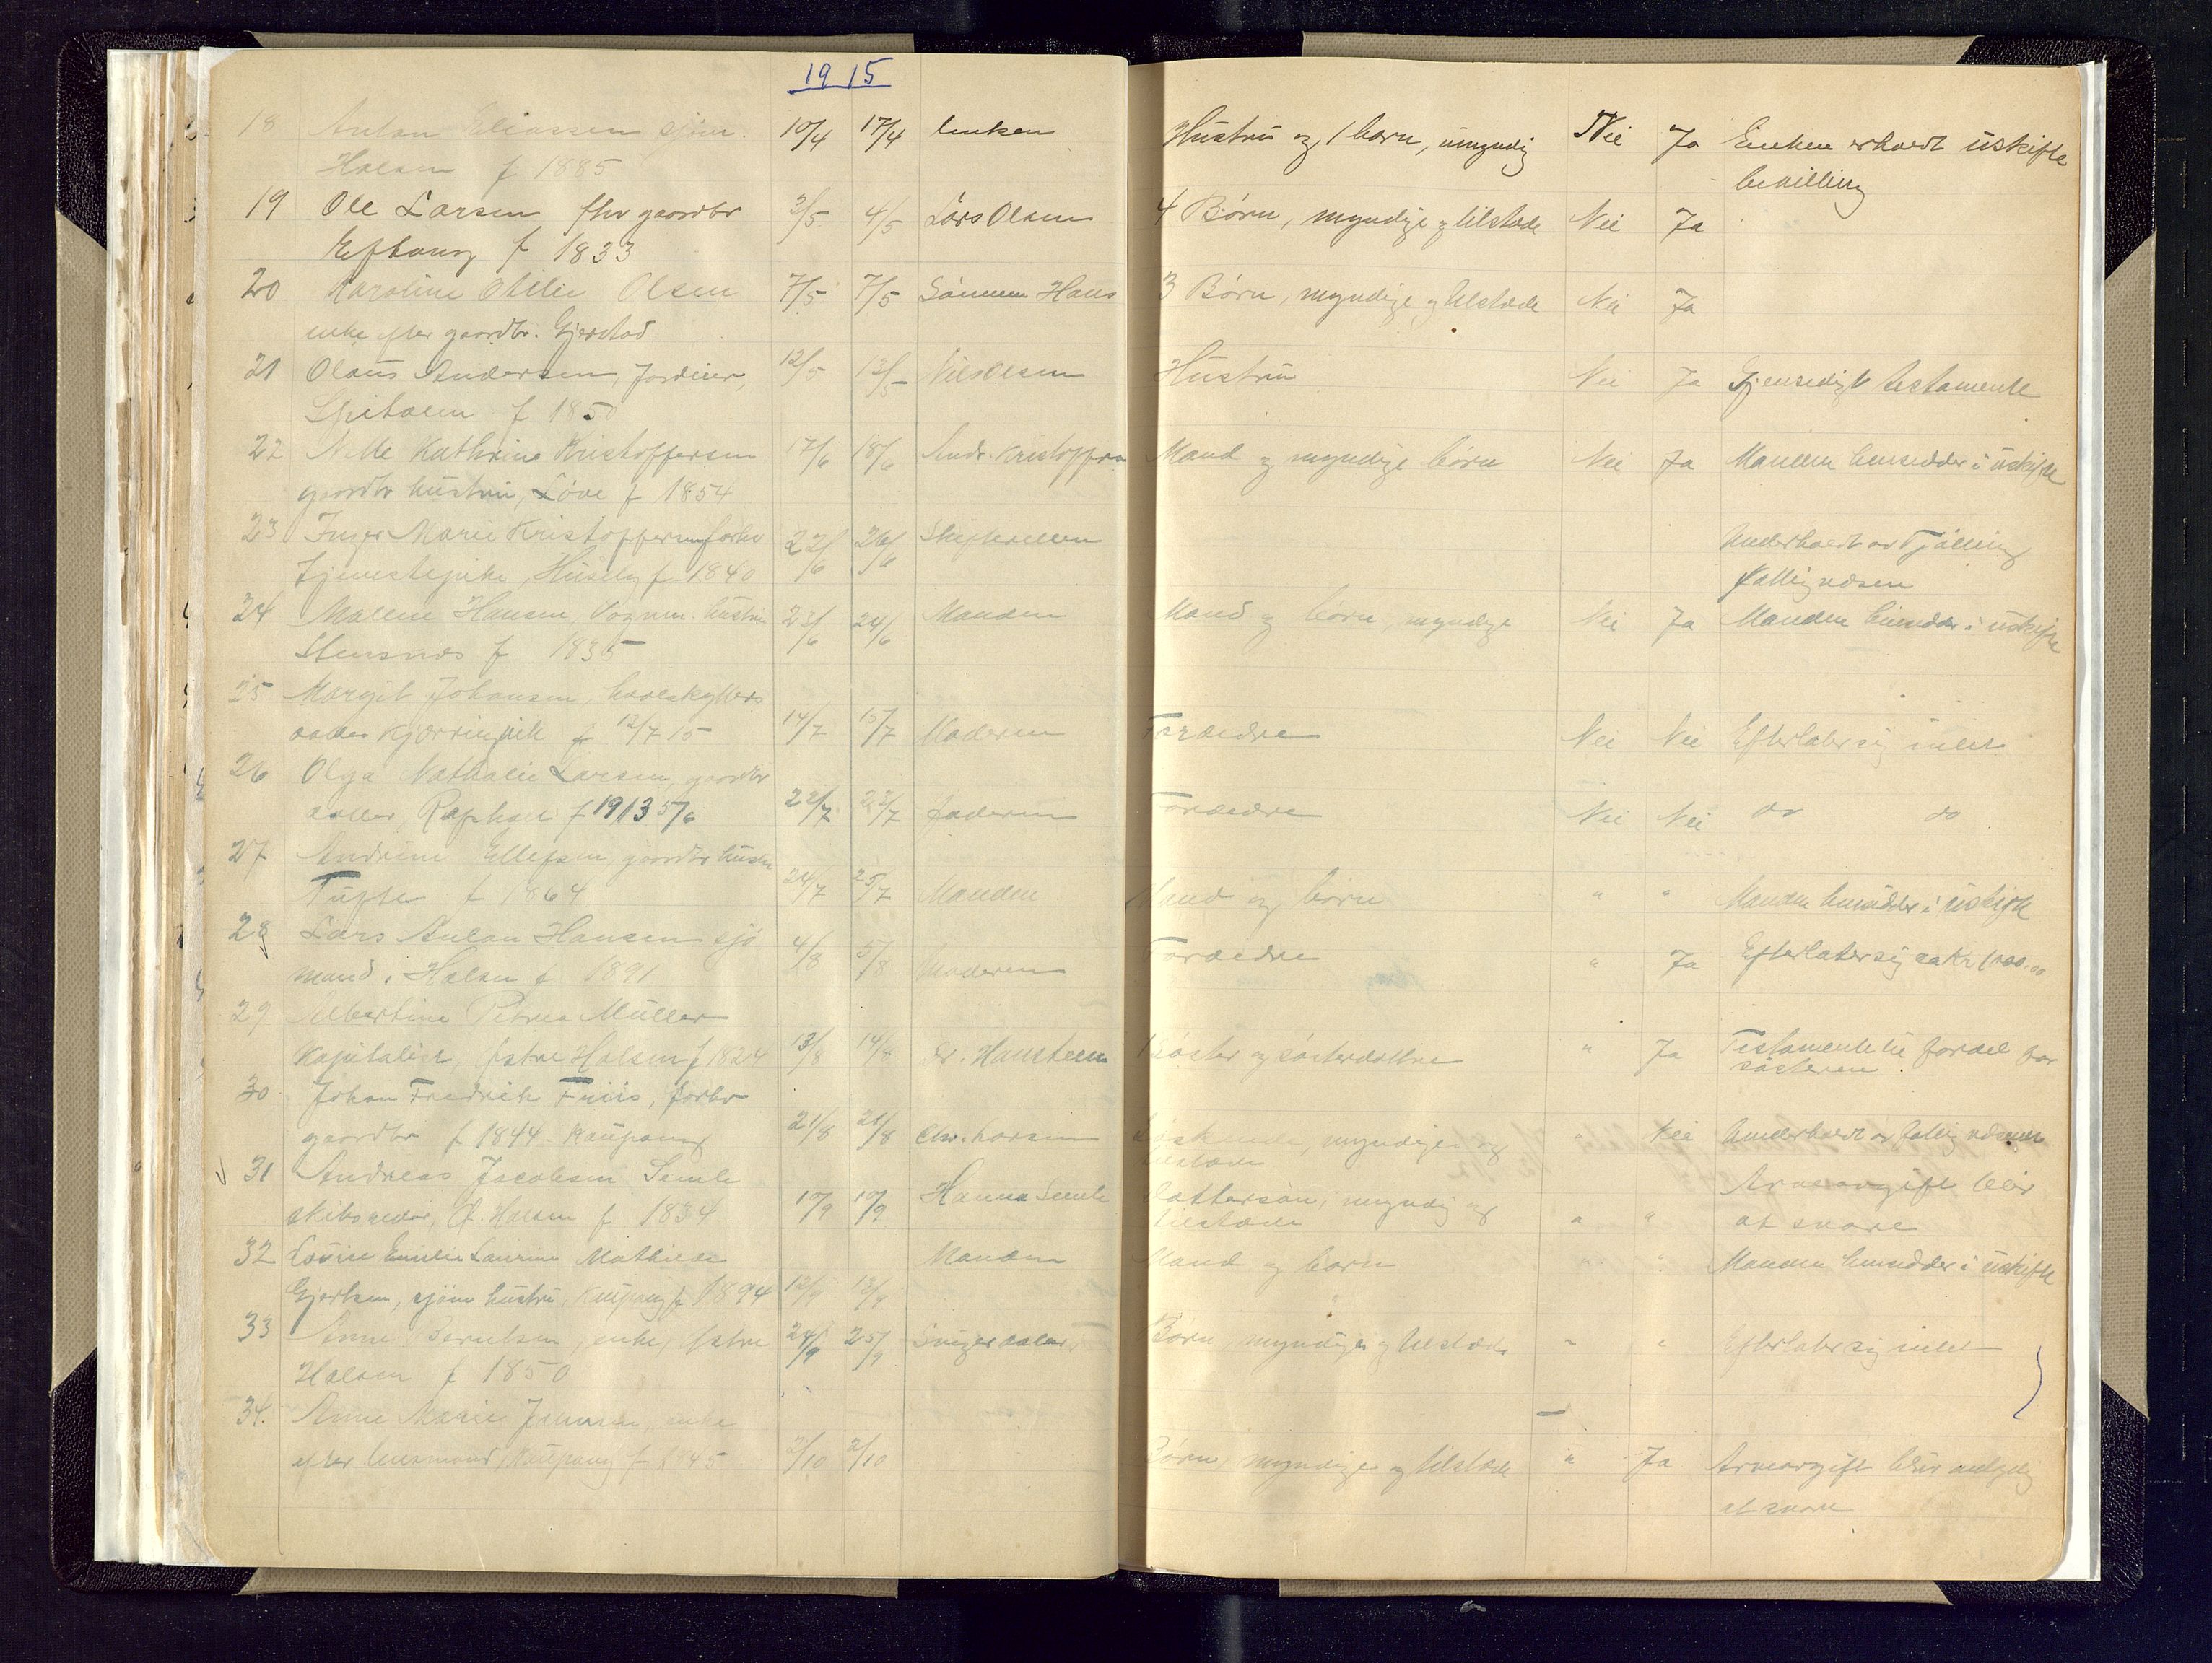 1915
18 Anton Eliassen sjøm. 10/4 17/4 Enken Hustru og 1 barn, umyndig Nei Ja Enken erholdt uskifte
Halsen f 1885 bevilling
19 Ole Larsen fhv gaardbr 3/5 4/5 Lars Olsen 4 Børn, myndige og tilstede Nei Ja
Eftang f 1833
20 Karoline Otilie Olsen 7/5 7/5 Sønnen Hans 3 Børn, myndige og tilstede Nei Ja
enke efter gaardbr. Gjerstad
21 Olaus Andersen, Jordeier, 12/5 13/5 Nils Olsen Hustru Nei Ja Gjensidigt testamente
f 1850
22 Nille Kathrine Kristoffersen 17/6 18/6 Andr. Kristoffersen Mand og myndige børn Nei Ja Manden hensidder i uskifte
gaardbr hustru, Løve f 1854
23 Inger Marie Kristoffersen forhv 22/6 26/6 Skifteretten Underholdt av Tjølling
tjenestepike, Huseby f 1840 fattigvæsen
24 Malene Hansen, Vognm. hustru 23/6 24/6 Manden Mand og børn, myndige Nei Ja Manden hensidder i uskifte
Stensnes f 1835
25 Margit Johansen, hvalskytters
datter Kjørringvik f 12/7 15 14/7 15/7 Moderen Forældre Nei Nei Efterlater sig intet
26 Olga Nathalie Larsen, gaardbr
datter, Raphael f 1913 5/6 22/7 22/7 Faderen Forældre Nei Nei do do
27 Andrine Ellefsen gaardbr hustru
Tufte f 1864 24/7 25/7 Manden Mand og børn " " Manden hensidder i uskifte
28 Lars Anton Hansen sjø
mand, Halsen f 1891 4/8 5/8 Moderen Forældre " Ja Efterlater sig ca Kr 1000.00
29 Albertine Petrea Müller
Kapitalist, Østre Halsen f 1824 13/8 14/8 Dr. Hansteen 1 Søster og søsterdøttre " Ja Testamente til fordel for
søsteren.
30 Johan Fredrik Friis, forhv
gaardbr f 1844. Kaupang 21/8 21/8 Chr. Larsen Søskende, myndige og Nei Underholdt av fattigvæsenet
tilstede
31 Andreas Jacobsen Semb Arveavgift blir
skibsreder, Ø. Halsen f 1834 10/9 10/9 Hanna Semb Dattersøn, myndig og " " at svare
tilstede
32 Lovise Emilie Laurine Mathilde Manden Mand og barn " " Manden hensidder i uskifte
Gjertsen, sjøm hustru, Kaupang f 1894 12/9 13/9
33 Anne Berntsen, enke, Østre 24/9 25/9 Svigerdatter Børn myndige og tilstede " " Efterlater sig intet
Halsen f 1850
34. Anne Marie Jensen, enke
efter husmand, Kaupang f 1845 2/10 2/10 Børn, myndige og tilstede " Ja Arveavgift blir
at svare